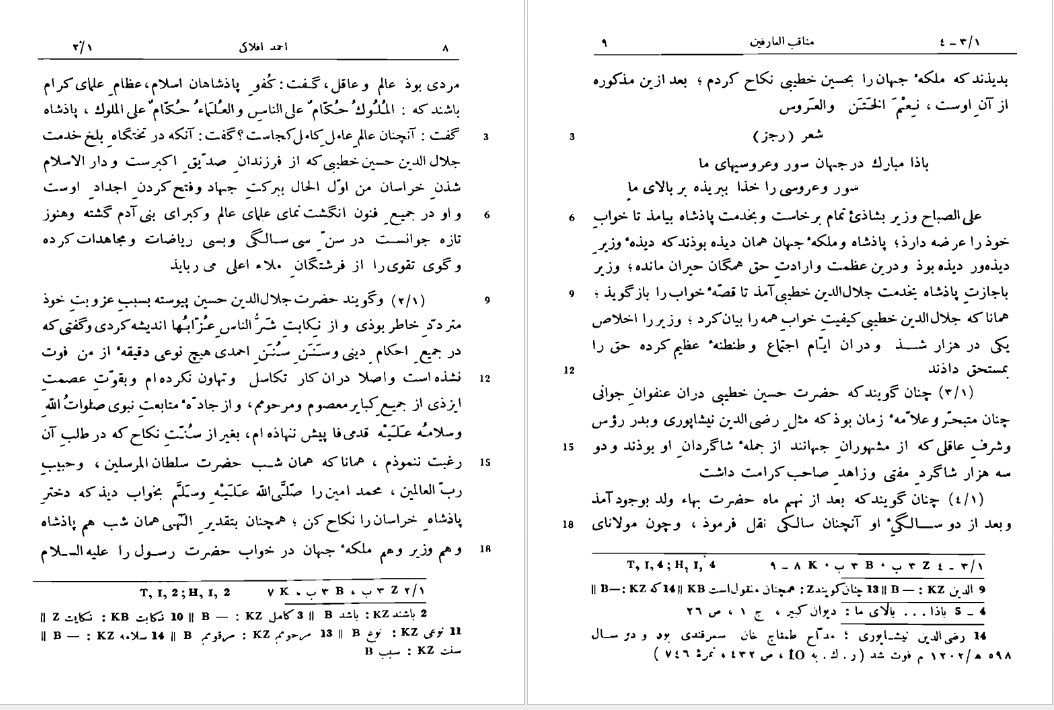 ۸ احمد افلاکی ۲/۱
مردی بوذ عالم وعاقل، گفت: کُفوِ پاذشاهان اسلام، عظامِ علمای کرام
باشند که: المُلُوكُ حُكّامٌ على الناسِ والعُلَماءُ حُكّامٌ على الملوك، پاذشاه
گفت: آنچنان عالمِ عاملِ کامل کجاست؟ گفت: آنکه در تختگاه بلخ خدمت 3
جلال الدین حسین خطیبی که از فرزندان صدّیقِ اکبرست ودار الاسلام
شذن خراسان من اوّل الحال ببرکتِ جهاد وفتح کردن اجداد اوست
و او در جمیعِ فنون انگشت نمای علمای عالم وکبرای بنی آدم گشته وهنوز 6
تازه جوانست در سنّ سی سالگی وبسی ریاضات ومجاهدات کرده
وگوی تقوی را از فرشتگانِ ملاء اعلی می ربایذ
(۲/۱) وگویند حضرت جلال الدین حسین پیوسته بسببِ عزوبتِ خوذ 9
متردّدِ خاطر بوذی و از نکایتِ شَرُّ الناس عُزّابُها اندیشه کردی وگفتی که
در جمیعِ احکامِ دینی وسَنَنِ سُنَنِ احمدی هیچ نوعی دقیقهٔ از من فوت
نشذه است واصلا دران کار تکاسل وتهاون نکرده ام وبقوّتِ عصمت 12
ایزذی از جمیع کبایر معصوم ومرحومم، و از جادّهٔ متابعتِ نبوی صلواتُ الله
وسلامُهُ عَلَیْهِ قدمی فا پیش ننهاذه ام، بغیر از سُنّتِ نکاح که در طلبِ آن
رغبت ننموذم، همانا که همان شب حضرت سلطان المرسلین، وحبیبِ 15
ربّ العالمین، محمد امین را صَلَّی الله عَلَیْهِ وسَلَّم بخواب دیذ که دختر
پاذشاهِ خراسان را نکاح کن؛ همچنان بتقدیرِ الٓهی همان شب هم پاذشاه
وهم وزیر وهم ملکهٔ جهان در خواب حضرت رسول را علیه السلام 18
۲/۱ Z ۳ ب ، B ۳ ب ، K ۷ T, I, 2; H, I, 2
2 باشند KZ: باشد B ‖ 3 کامل KZ : — B ‖ 10 نکایت KB : نکایات Z ‖
11 نوعی KZ : نوع B ‖ 13 مرحومم KZ : مرقومم B ‖ 14 سلامه KZ : — B ‖
سنت KZ : سبب B
۹ مناقب العارفین ۳/۱ – ٤
بدیذند که ملکهٔ جهان را بحسین خطیبی نکاح کردم؛ بعد ازین مذکوره
از آنِ اوست، نِعْمَ الخَتَنِ والعَروس
شعر (رجز) 3
باذا مبارك درجهان سور وعروسیهای ما
سور وعروسی را خذا ببریذه بر بالای ما
علی الصباح وزیر بشاذیٔ تمام برخاست وبخدمت پاذشاه بیامذ تا خوابِ 6
خوذ را عرضه دارذ؛ پاذشاه وملکهٔ جهان همان دیذه بوذند که دیذهٔ وزیرِ
دیذه‌ور دیذه بوذ ودرین عظمت وارادتِ حق همگان حیران مانده؛ وزیر
باجازتِ پاذشاه بخدمت جلال الدین خطیبی آمذ تا قصّهٔ خواب را بازگویذ؛ 9
همانا که جلال الدین خطیبی کیفیتِ خواب همه را بیان کرد؛ وزیر را اخلاص
یکی در هزار شذ ودران ایّام اجتماع وطنطنهٔ عظیم کرده حق را
بمستحق داذند 12
(۳/۱) چنان گویند که حضرت حسین خطیبی دران عنفوانِ جوانی
چنان متبحّر وعلّامهٔ زمان بوذ که مثلِ رضی الدین نیشاپوری وبدر رؤس
وشرفِ عاقلی که از مشهورانِ جهانند از جملهٔ شاگردانِ او بوذند و دو 15
سه هزار شاگردِ مفتی وزاهدِ صاحب کرامت داشت
(٤/۱) چنان گویند که بعد از نهم ماه حضرت بهاء ولد بوجود آمذ
وبعد از دو سالگیٔ او آنچنان سالکی نقل فرموذ، وچون مولانای 18
۳/۱ – ٤ Z ۳ ب ، B ۳ ب ، K ۸ – ۹ T, I, 4; H, I, 4
9 الدین KZ : — B ‖ 13 چنان گویند Z: همچنان منقول است KB ‖ 14 که KZ : — B ‖
4 – 5 باذا ... بالای ما : دیوان کبیر ، ج ۱ ، ص ۲٦
14 رضی الدین نیشاپوری : مدّاح طمغاج خان سمرقندی بود و در سال
۵۹۸ ه/۱۲۰۲ م فوت شد (ر. ك. به İO ، ص ٤۳۲ ، نمرهٔ ۷٤٦)